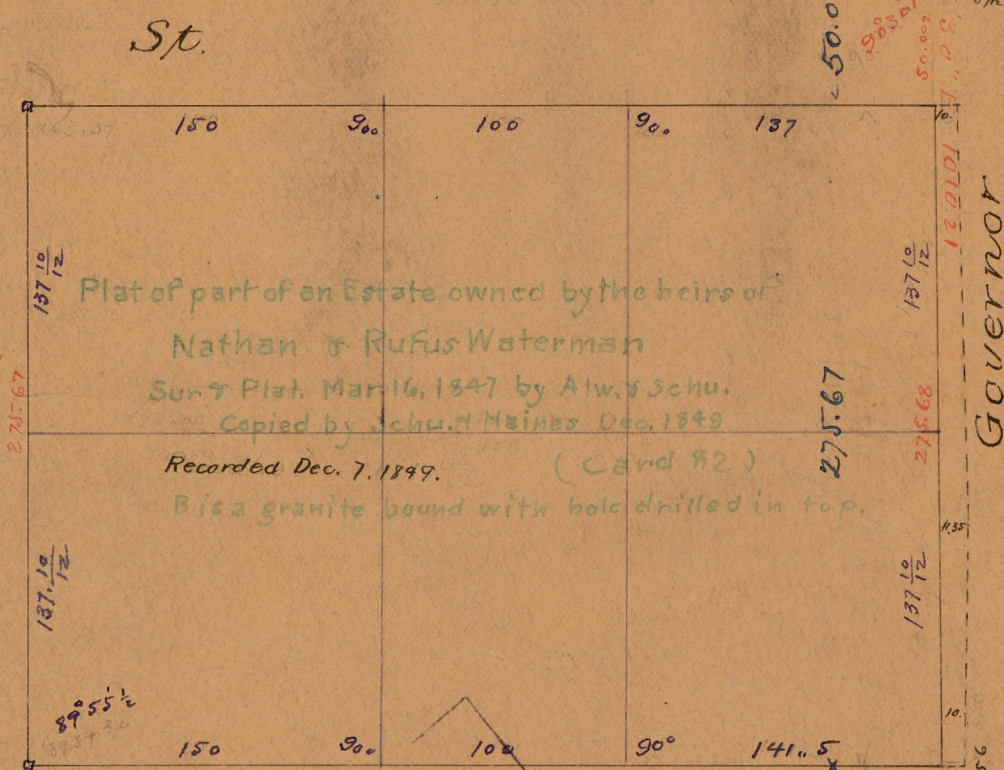 St.
50.0
90°30'
50.002
30" E
10.
150 900 100 90. 137
1010.21
137 10/12
137 10/12
Governor
Plat of part of an Estate owned by the heirs of
Nathan & Rufus Waterman
Sur & Plat. Mar. 16, 1847 by Atw. & Schu.
275.67
275.67
275.68
Copied by Schu. & Haines Dec. 1849
Recorded Dec. 7. 1849.
(Card 82)
B is a granite bound with hole drilled in top.
11.35
137. 10/12
137 10/12
89° 55' ½
10.
150 900 100 90° 141.. 5
56